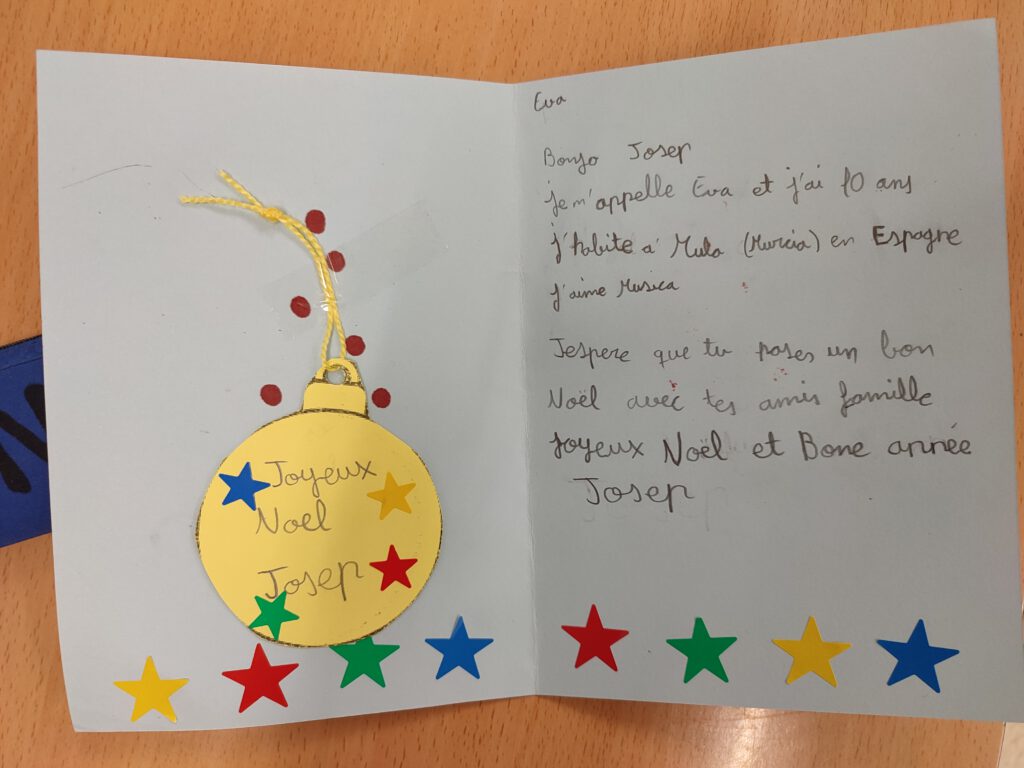 Joyeux
Noel
Josep
Eva
Bonjo Josep
je m'appelle Eva et j'ai 10 ans
j'habite a' Mula (Murcia) en Espagne
j'aime Musica
Jespere que tu pases un bon
Noël avec tes amis famille
Joyeux Noël et Bone année
Josep